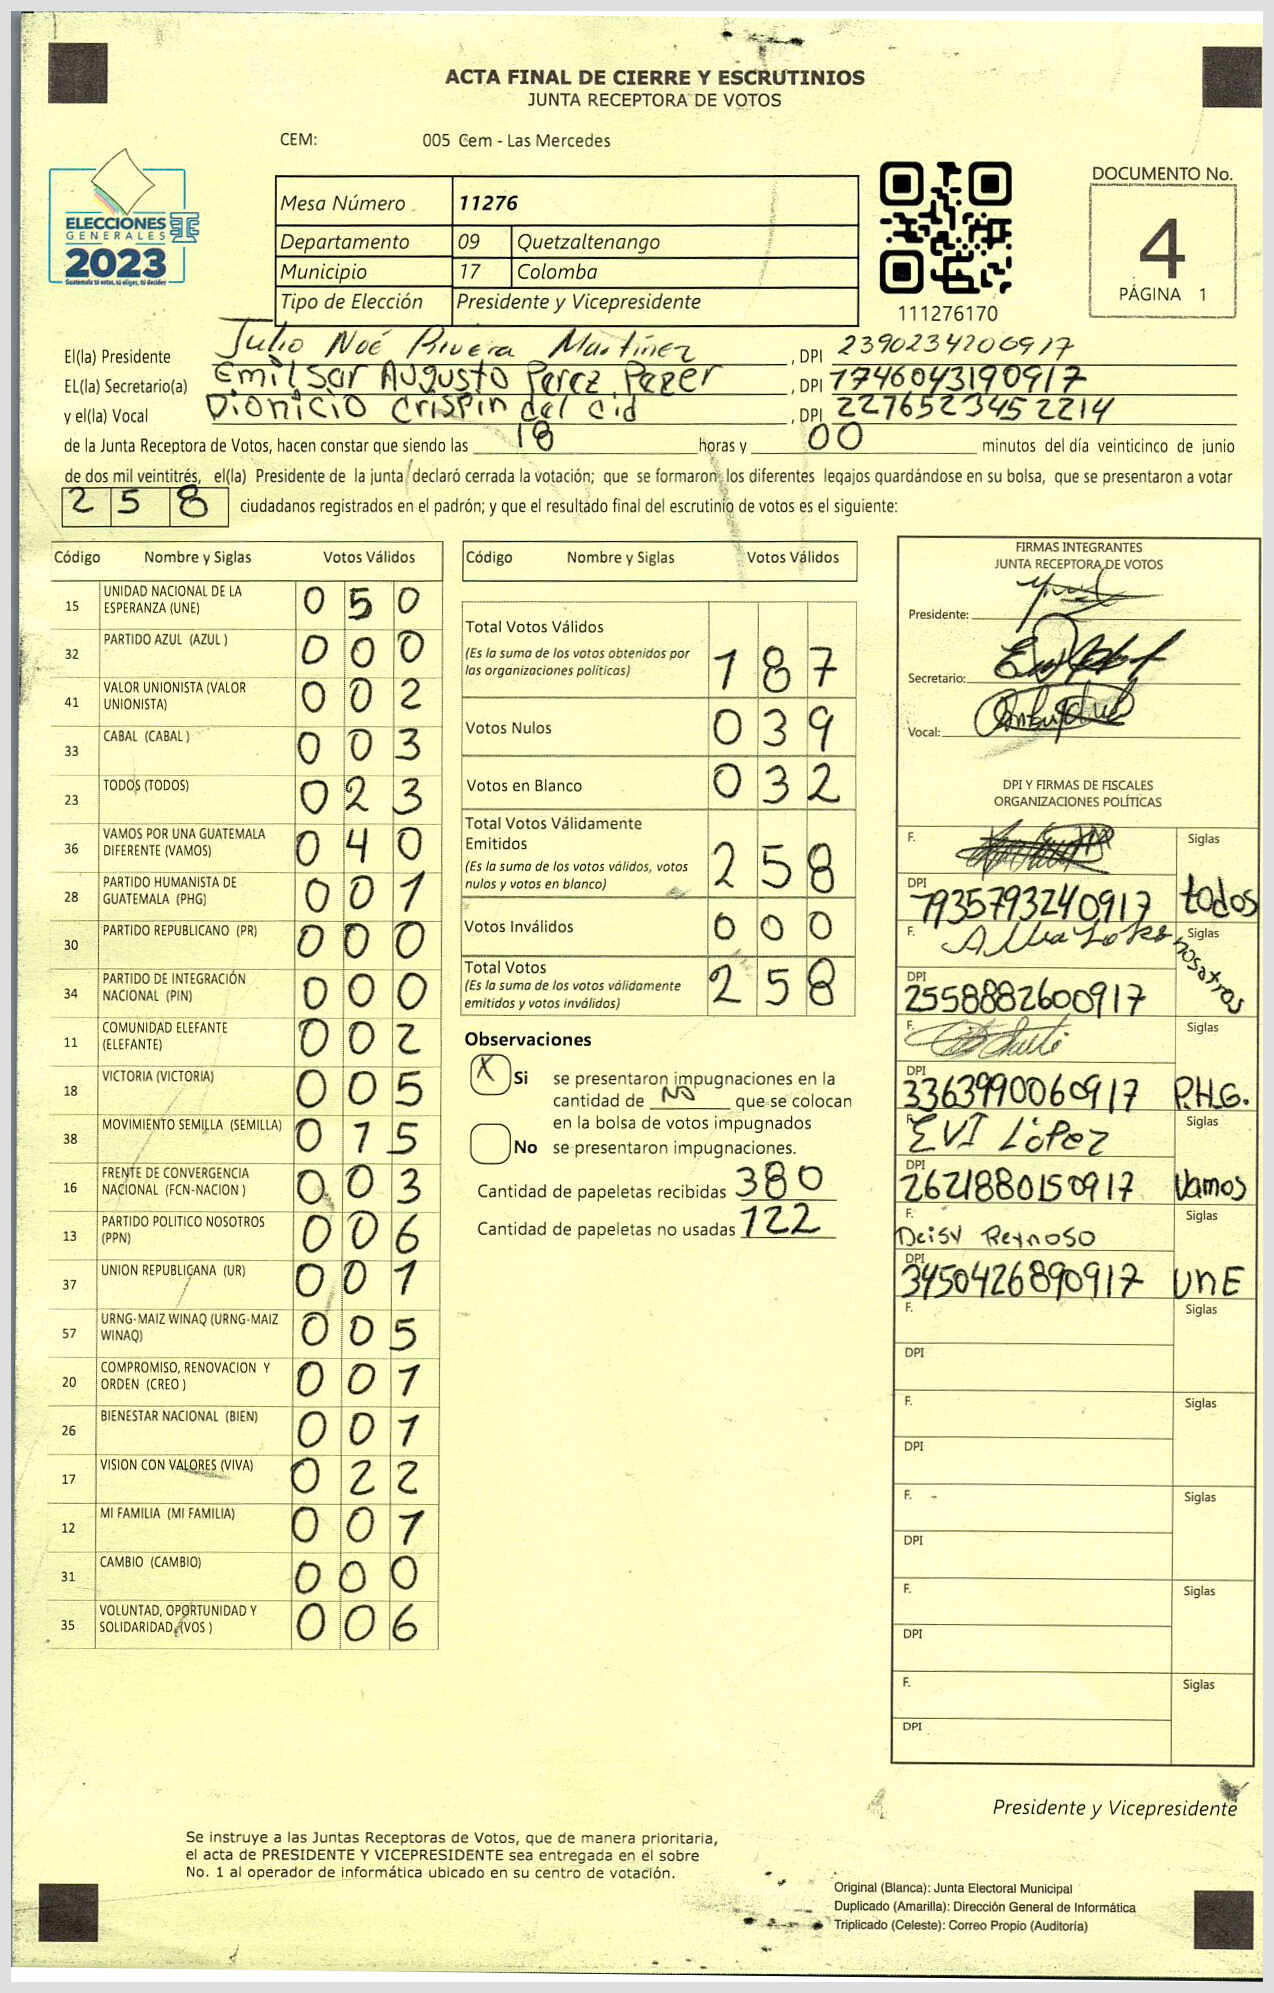 ACTA FINAL DE CIERRE Y ESCRUTINIOS
JUNTA RECEPTORA DE VOTOS
CEM: 005 Cem - Las Mercedes
ELECCIONES
GENERALES
2023
Guatemala tú votas, tú eliges, tú decides
Mesa Número 11276
Departamento 09 Quetzaltenango
Municipio 17 Colomba
Tipo de Elección Presidente y Vicepresidente
111276170
DOCUMENTO No.
4
PÁGINA 1
El(la) Presidente Julio Noé Rivera Martínez, DPI 2390234200917
EL(la) Secretario(a) Emilsar Augusto Perez Pazer, DPI 1746043190917
y el(la) Vocal Dionicio Crispin del Cid, DPI 2276523452214
de la Junta Receptora de Votos, hacen constar que siendo las 18 horas y 00 minutos del día veinticinco de junio
de dos mil veintitrés, el(la) Presidente de la junta declaró cerrada la votación; que se formaron los diferentes legajos guardándose en su bolsa, que se presentaron a votar
258 ciudadanos registrados en el padrón; y que el resultado final del escrutinio de votos es el siguiente:
Código Nombre y Siglas Votos Válidos
15 UNIDAD NACIONAL DE LA ESPERANZA (UNE) 050
32 PARTIDO AZUL (AZUL ) 000
41 VALOR UNIONISTA (VALOR UNIONISTA) 002
33 CABAL (CABAL ) 003
23 TODOS (TODOS) 023
36 VAMOS POR UNA GUATEMALA DIFERENTE (VAMOS) 040
28 PARTIDO HUMANISTA DE GUATEMALA (PHG) 001
30 PARTIDO REPUBLICANO (PR) 000
34 PARTIDO DE INTEGRACIÓN NACIONAL (PIN) 000
11 COMUNIDAD ELEFANTE (ELEFANTE) 002
18 VICTORIA (VICTORIA) 005
38 MOVIMIENTO SEMILLA (SEMILLA) 015
16 FRENTE DE CONVERGENCIA NACIONAL (FCN-NACION ) 003
13 PARTIDO POLITICO NOSOTROS (PPN) 006
37 UNION REPUBLICANA (UR) 001
57 URNG-MAIZ WINAQ (URNG-MAIZ WINAQ) 005
20 COMPROMISO, RENOVACION Y ORDEN (CREO ) 001
26 BIENESTAR NACIONAL (BIEN) 001
17 VISION CON VALORES (VIVA) 022
12 MI FAMILIA (MI FAMILIA) 001
31 CAMBIO (CAMBIO) 000
35 VOLUNTAD, OPORTUNIDAD Y SOLIDARIDAD, (VOS ) 006
Código Nombre y Siglas Votos Válidos
Total Votos Válidos 187
(Es la suma de los votos obtenidos por
las organizaciones políticas)
Votos Nulos 039
Votos en Blanco 032
Total Votos Válidamente
Emitidos 258
(Es la suma de los votos válidos, votos
nulos y votos en blanco)
Votos Inválidos 000
Total Votos 258
(Es la suma de los votos válidamente
emitidos y votos inválidos)
Observaciones
X Si se presentaron impugnaciones en la
cantidad de NO que se colocan
en la bolsa de votos impugnados
No se presentaron impugnaciones.
Cantidad de papeletas recibidas 380
Cantidad de papeletas no usadas 122
FIRMAS INTEGRANTES
JUNTA RECEPTORA DE VOTOS
Presidente:
Secretario:
Vocal:
DPI Y FIRMAS DE FISCALES
ORGANIZACIONES POLÍTICAS
F. Siglas
DPI 7935793240917 todos
F. Siglas nosotros
DPI 2558882600917
F. Siglas
DPI 3363990060917 P.H.G.
F. EVI LòPez Siglas
DPI 2621880150917 Vamos
F. Deisy Reynoso Siglas
DPI 3450426890917 UnE
F. Siglas
DPI
F. Siglas
DPI
F. Siglas
DPI
F. Siglas
DPI
F. Siglas
DPI
Presidente y Vicepresidente
Se instruye a las Juntas Receptoras de Votos, que de manera prioritaria,
el acta de PRESIDENTE Y VICEPRESIDENTE sea entregada en el sobre
No. 1 al operador de informática ubicado en su centro de votación.
Original (Blanca): Junta Electoral Municipal
Duplicado (Amarilla): Dirección General de Informática
Triplicado (Celeste): Correo Propio (Auditoría)